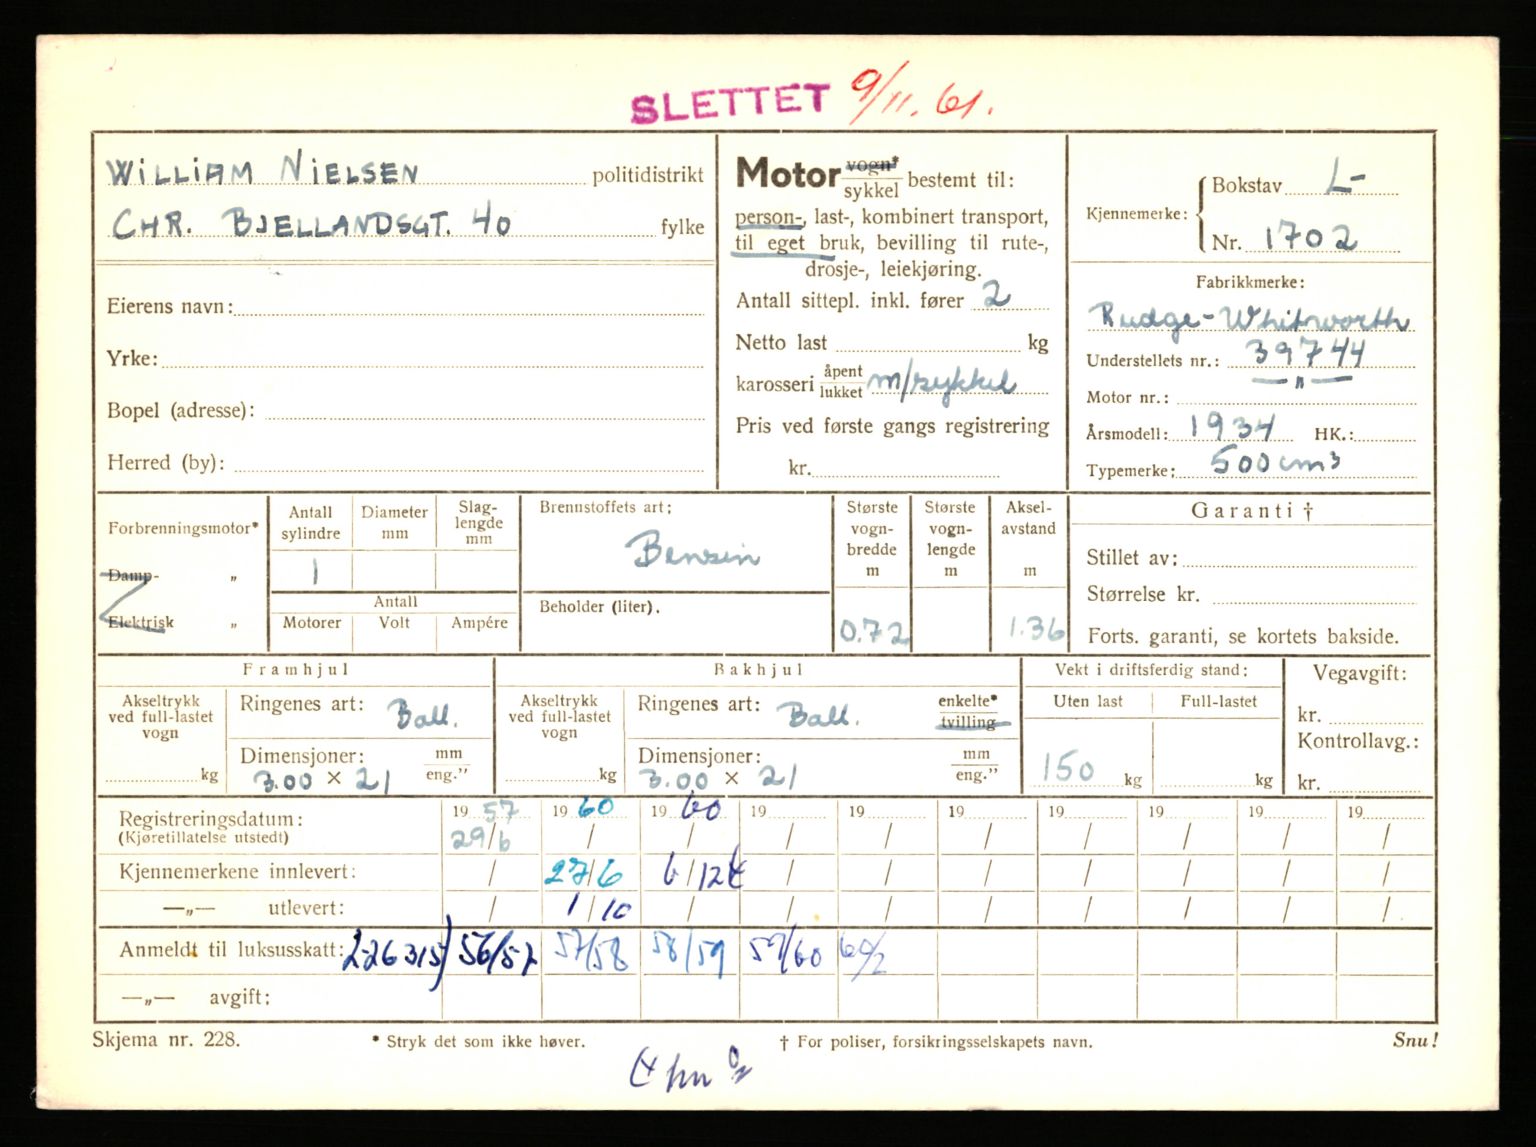 SLETTET 9/11. 61.
WILLIAM NIELSEN politidistrikt
CHR. BJELLANDSGT. 40 fylke
Eierens navn:
Yrke:
Bopel (adresse):
Herred (by):
Motor vogn* sykkel bestemt til:
person-, last-, kombinert transport,
til eget bruk, bevilling til rute-,
drosje-, leiekjøring.
Antall sittepl. inkl. fører 2
Netto last kg
karosseri åpent lukket m/sykkel
Pris ved første gangs registrering
kr.
Kjennemerke: Bokstav L-
Nr. 1702
Fabrikkmerke:
Rudge-Whitworth
Understellets nr.: 39744
Motor nr.: —"—
Årsmodell: 1934 HK.:
Typemerke: 500 cm³
Forbrenningsmotor*
Damp- „
Elektrisk „
Antall sylindre
Diameter mm
Slag-
lengde
mm
1
Antall
Motorer Volt Ampére
Brennstoffets art:
Bensin
Beholder (liter).
Største
vogn-
bredde
m
0.72
Største
vogn-
lengde
m
Aksel-
avstand
m
1.36
Garanti †
Stillet av:
Størrelse kr.
Forts. garanti, se kortets bakside.
Framhjul
Akseltrykk
ved full-lastet
vogn
kg
Ringenes art: Ball.
Dimensjoner: mm eng.”
3.00 × 21
Bakhjul
Akseltrykk
ved full-lastet
vogn
kg
Ringenes art: Ball. enkelte* tvilling
Dimensjoner: mm eng.”
3.00 × 21
Vekt i driftsferdig stand:
Uten last Full-lastet
150 kg kg
Vegavgift:
kr.
Kontrollavg.:
kr.
Registreringsdatum: 19 57 19 60 19 60 19 19 19 19 19 19 19
(Kjøretillatelse utstedt) 29/6 / / / / / / / / /
Kjennemerkene innlevert: / 27/6 6/12 / / / / / / /
—„— utlevert: / 1/10 / / / / / / / /
Anmeldt til luksusskatt: 226315) 56/57 57/58 58/59 59/60
—„— avgift:
Skjema nr. 228. * Stryk det som ikke høver. † For poliser, forsikringsselskapets navn. Snu!